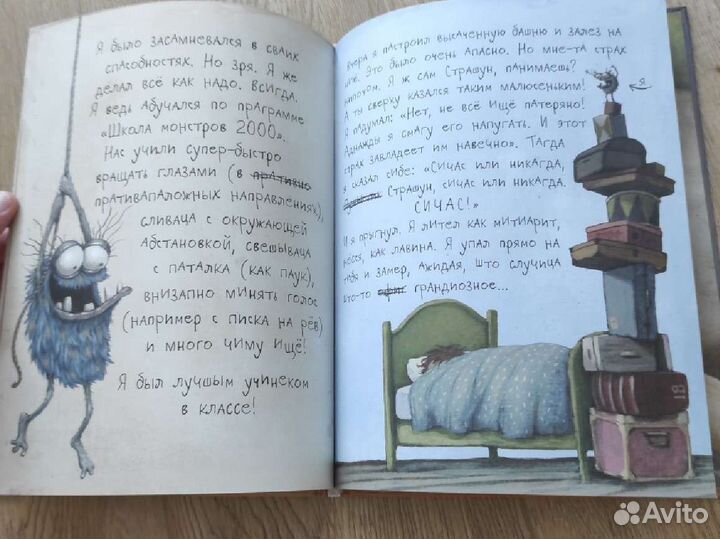 Я было засамневался в сваих
спасобностях. Но зря. Я же
делал всё как надо. Всигда.
Я ведь абучался по праграмме
«Школа монстров 2000».
Нас учили супер-быстро
вращать глазами (в пративно
пративапаложных направлениях),
сливаца с окружающей
абстановкой, свешываца
с паталка (как паук),
внизапно минять голос
(например с писка на рёв)
и много чиму ищё!
Я был лучшым учинеком
в классе!
Вчера я пастроил высаченную башню и залез на
Это было очень апасно. Но мне-та страх
нипочом. Я ж сам Страшун, панимаешь?
А ты сверху казался таким малюсеньким!
Я падумал: «Нет, не всё ищё патеряно!
Аднажды я смагу его напугать. И этот
страх завладеет им навечно». Тагда
я сказал сибе: «Сичас или никагда,
Страшун, сичас или никагда.
СИЧАС!»
И я прыгнул. Я лител как митиарит,
как лавина. Я упал прямо на
тибя и замер, ажидая, што случица
што-то грандиозное...
Я
18
Avito